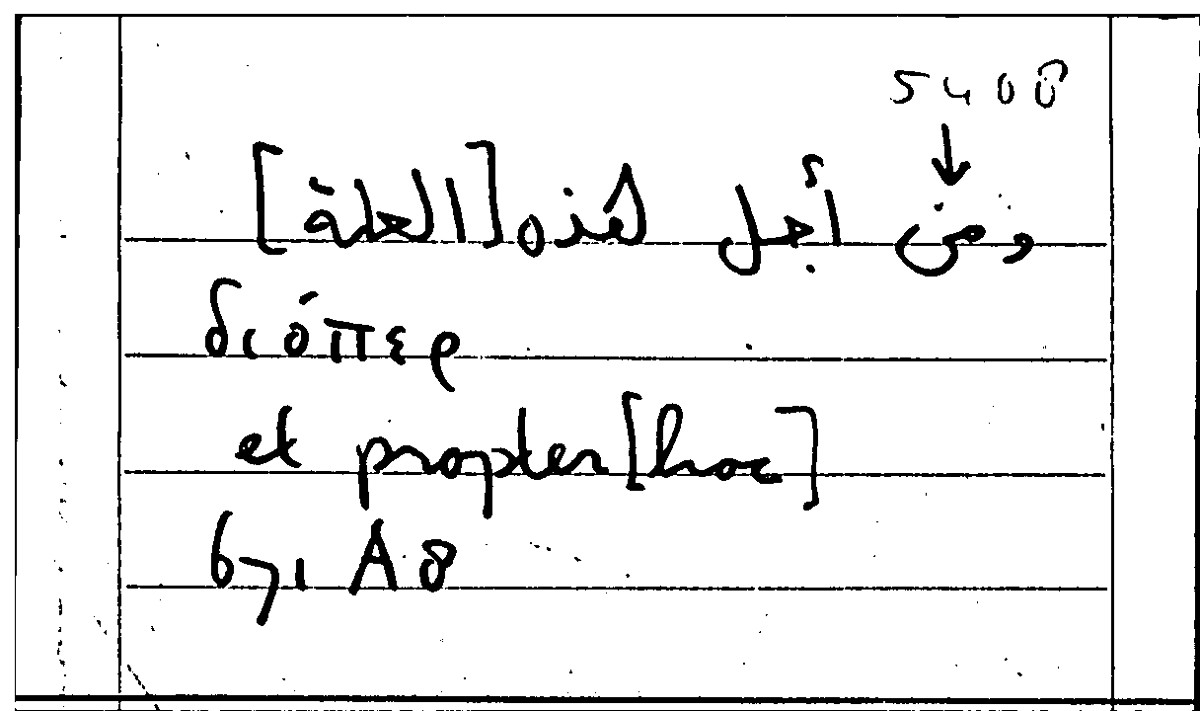 5400
ومن أجل هذه [العلة]
διόπερ
et propter [hoc]
671 A 8